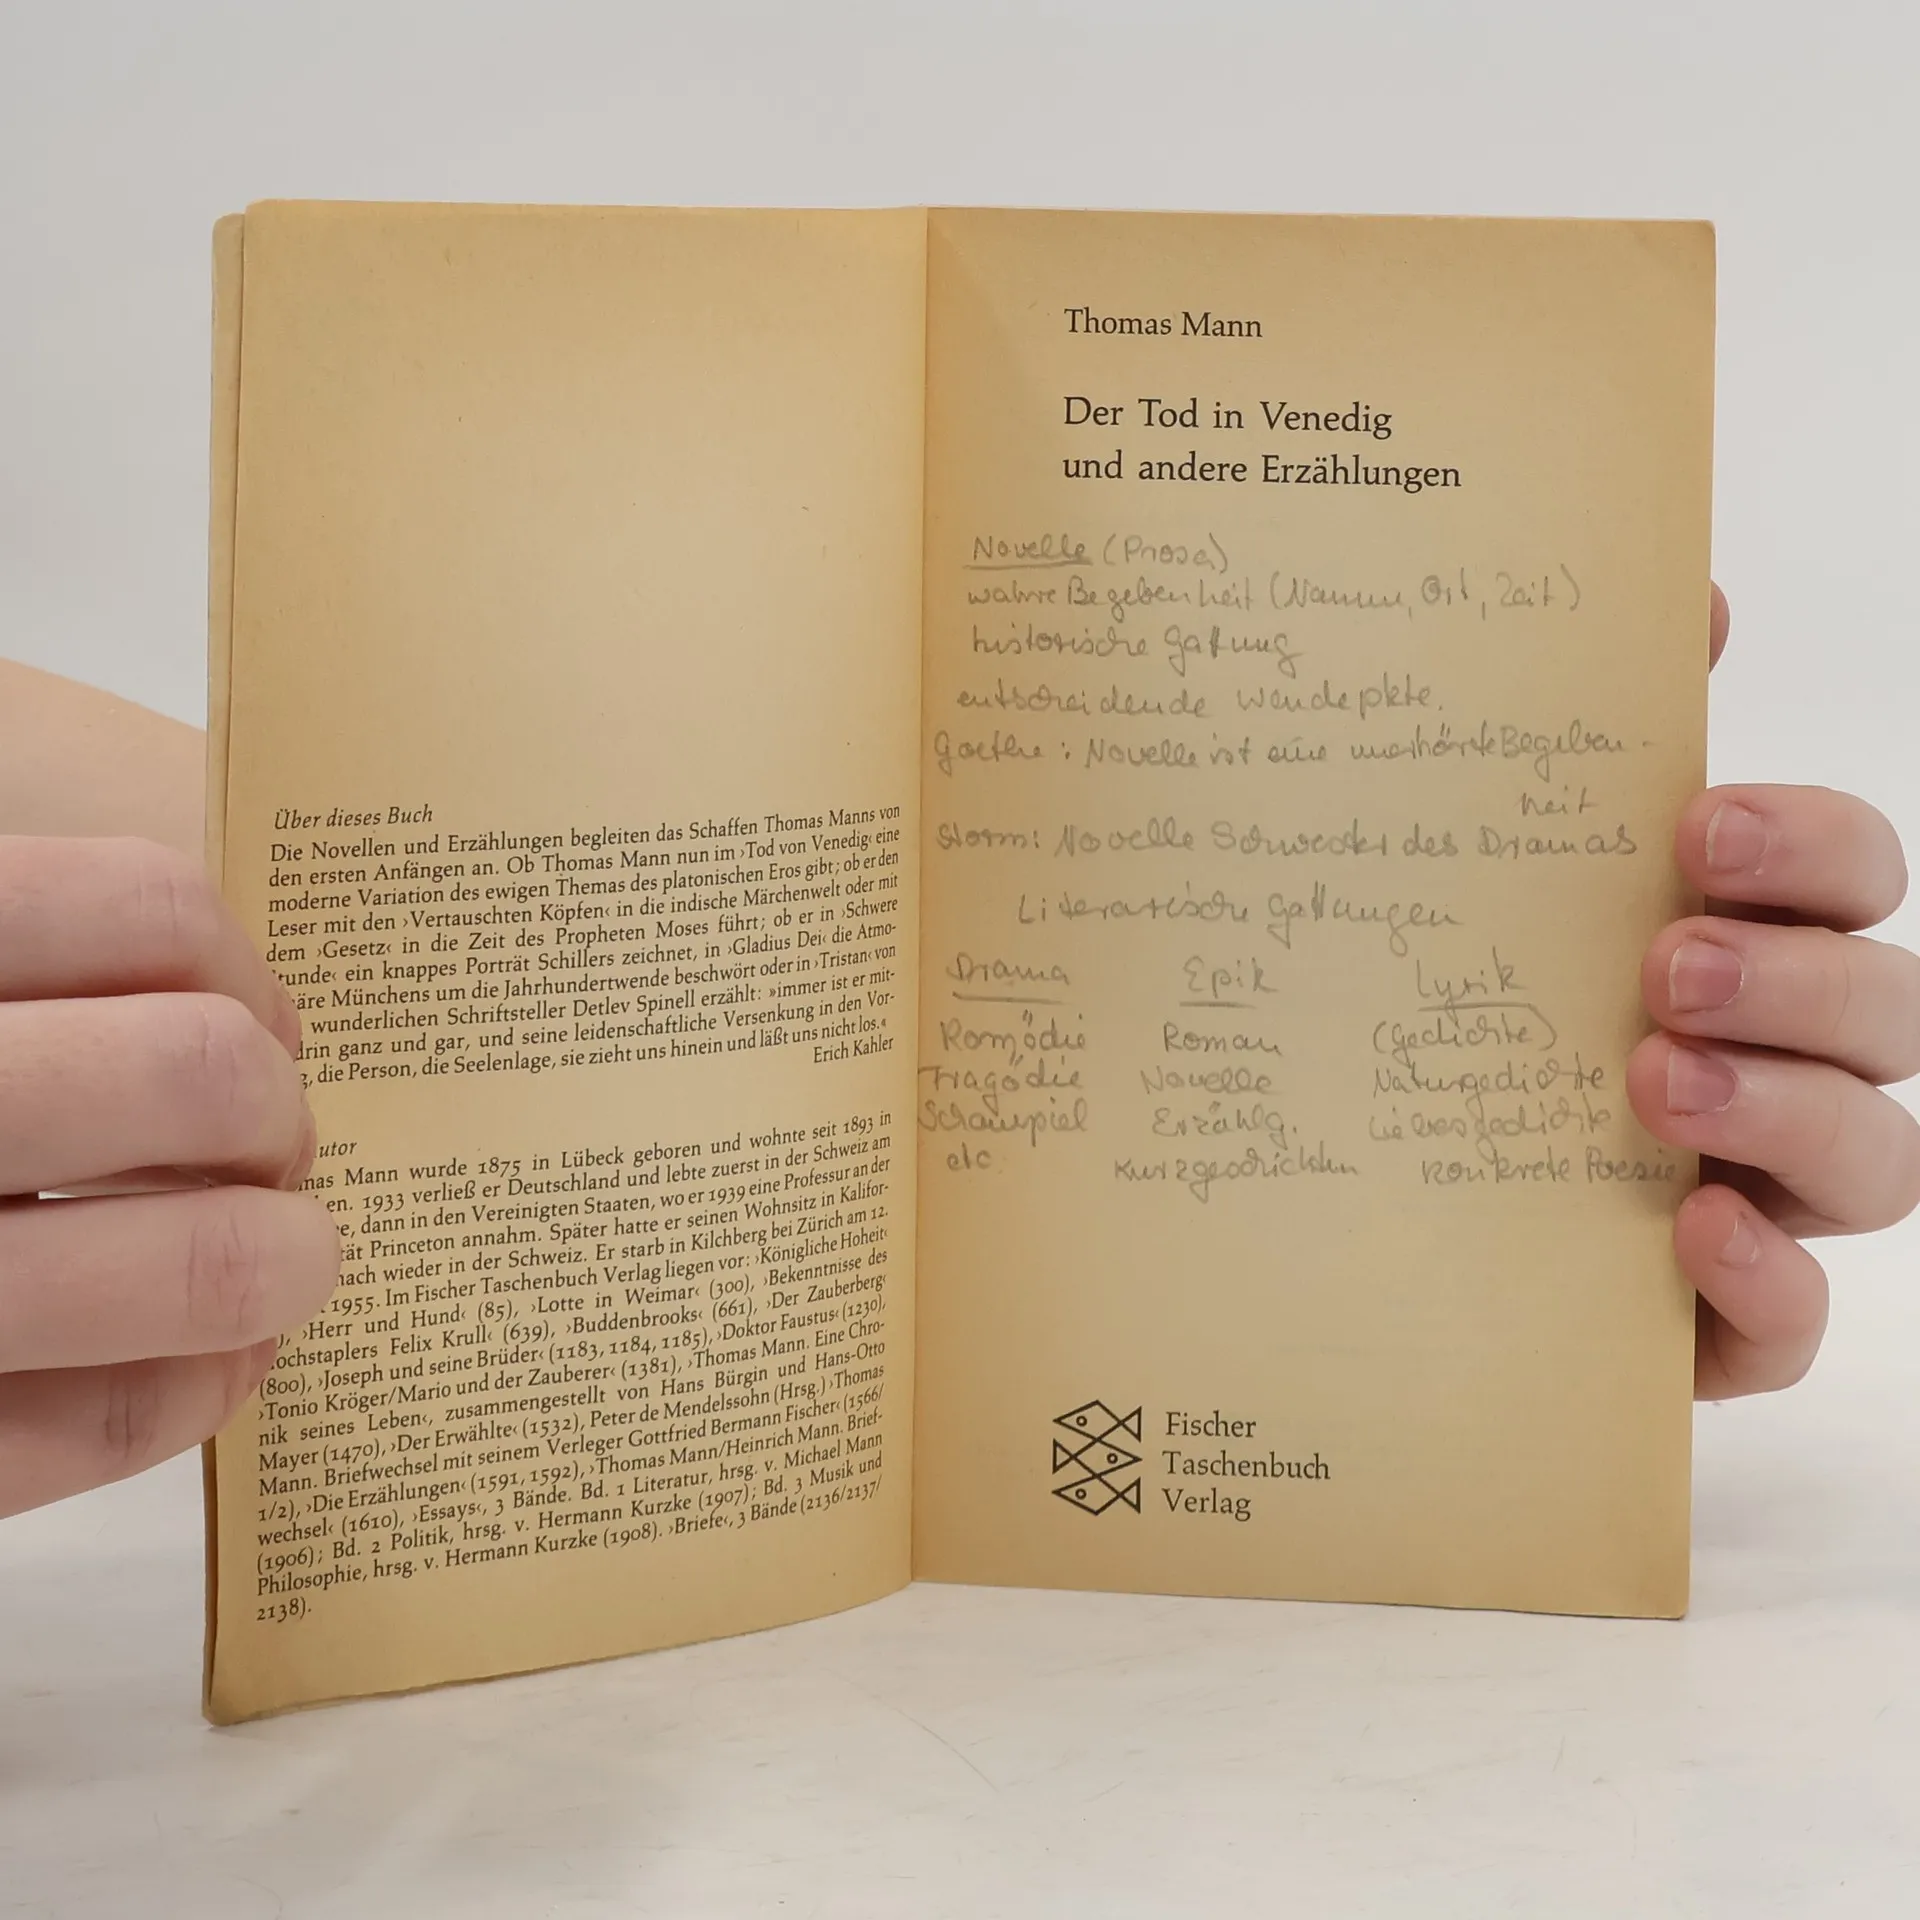 Über dieses Buch
Die Novellen und Erzählungen begleiten das Schaffen Thomas Manns von
den ersten Anfängen an. Ob Thomas Mann nun im ›Tod von Venedig‹ eine
moderne Variation des ewigen Themas des platonischen Eros gibt; ob er den
Leser mit den ›Vertauschten Köpfen‹ in die indische Märchenwelt oder mit
dem ›Gesetz‹ in die Zeit des Propheten Moses führt; ob er in ›Schwere
tunde‹ ein knappes Porträt Schillers zeichnet, in ›Gladius Dei‹ die Atmo-
äre Münchens um die Jahrhundertwende beschwört oder in ›Tristan‹ von
wunderlichen Schriftsteller Detlev Spinell erzählt: »immer ist er mit-
drin ganz und gar, und seine leidenschaftliche Versenkung in den Vor-
g, die Person, die Seelenlage, sie zieht uns hinein und läßt uns nicht los.«
Erich Kahler
utor
mas Mann wurde 1875 in Lübeck geboren und wohnte seit 1893 in
en. 1933 verließ er Deutschland und lebte zuerst in der Schweiz am
e, dann in den Vereinigten Staaten, wo er 1939 eine Professur an der
tät Princeton annahm. Später hatte er seinen Wohnsitz in Kalifor-
nach wieder in der Schweiz. Er starb in Kilchberg bei Zürich am 12.
1955. Im Fischer Taschenbuch Verlag liegen vor: ›Königliche Hoheit‹
), ›Herr und Hund‹ (85), ›Lotte in Weimar‹ (300), ›Bekenntnisse des
ochstaplers Felix Krull‹ (639), ›Buddenbrooks‹ (661), ›Der Zauberberg‹
(800), ›Joseph und seine Brüder‹ (1183, 1184, 1185), ›Doktor Faustus‹ (1230),
›Tonio Kröger/Mario und der Zauberer‹ (1381), ›Thomas Mann. Eine Chro-
nik seines Leben‹, zusammengestellt von Hans Bürgin und Hans-Otto
Mayer (1470), ›Der Erwählte‹ (1532), Peter de Mendelssohn (Hrsg.) ›Thomas
Mann. Briefwechsel mit seinem Verleger Gottfried Bermann Fischer‹ (1566/
1/2), ›Die Erzählungen‹ (1591, 1592), ›Thomas Mann/Heinrich Mann. Brief-
wechsel‹ (1610), ›Essays‹, 3 Bände. Bd. 1 Literatur, hrsg. v. Michael Mann
(1906); Bd. 2 Politik, hrsg. v. Hermann Kurzke (1907); Bd. 3 Musik und
Philosophie, hrsg. v. Hermann Kurzke (1908). ›Briefe‹, 3 Bände (2136/2137/
2138).
Thomas Mann
Der Tod in Venedig
und andere Erzählungen
Novelle (Prosa)
wahre Begebenheit (Namen, Ort, Zeit)
historische Gattung
entscheidende Wendepkte.
Goethe: Novelle ist eine unerhörte Begeben-
heit
Storm: Novelle Schwester des Dramas
Literarische Gattungen
Drama Epik Lyrik
Komödie Roman (Gedichte)
Tragödie Novelle Naturgedichte
Schauspiel Erzählg. Liebesgedichte
etc Kurzgeschichten Konkrete Poesie
Fischer
Taschenbuch
Verlag